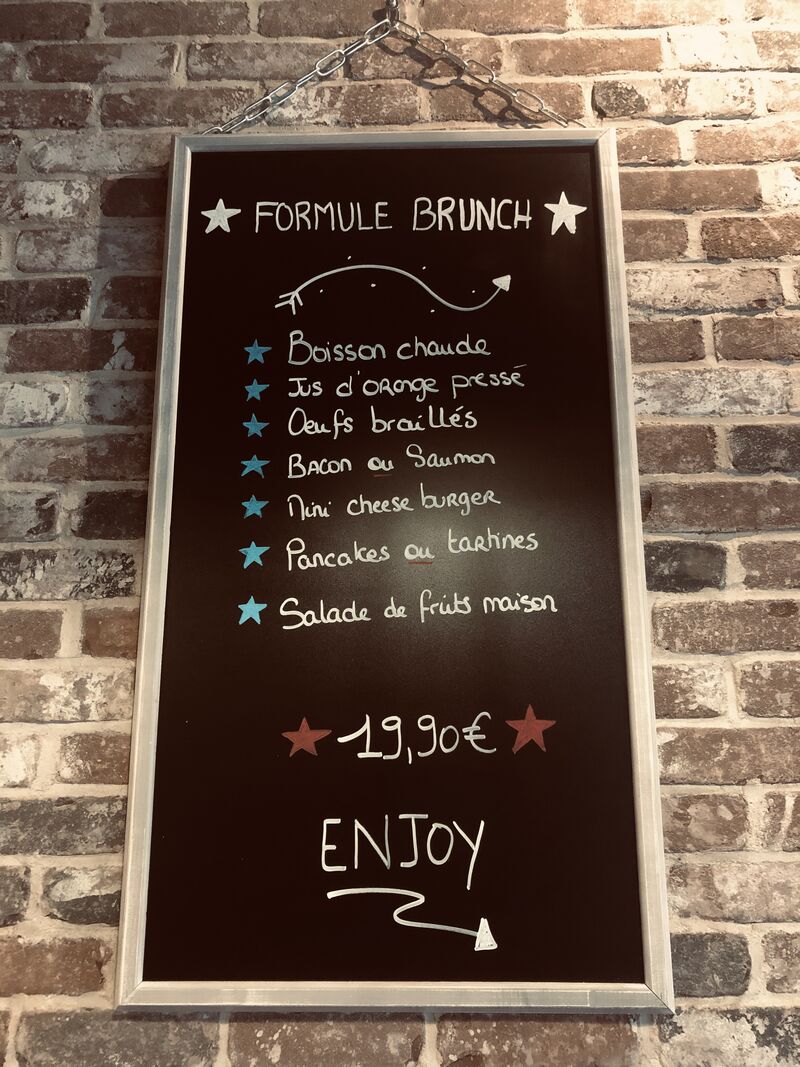 FORMULE BRUNCH
Boisson chaude
Jus d'orange pressé
Oeufs brouillés
Bacon ou Saumon
Mini cheese burger
Pancakes ou tartines
Salade de fruits maison
19,90€
ENJOY